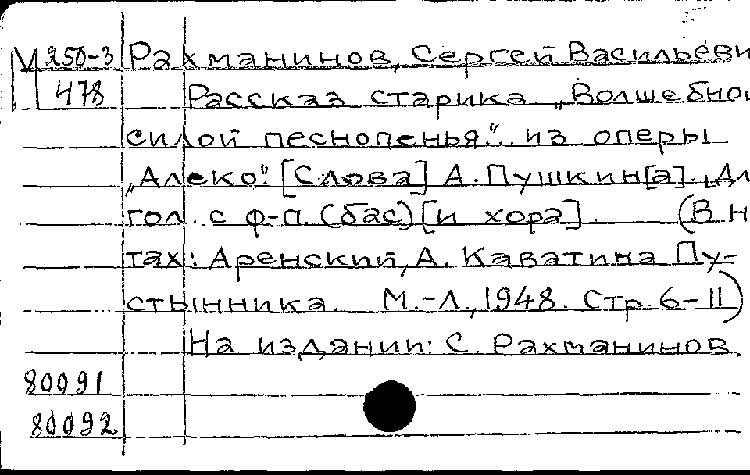 М 250-3 Рахманинов, Сергей Васильеви
478 Рассказ старика „Волшебно
силой песнопенья“.. из оперы
„Алеко“. [Слова] А. Пушкин[а]. Дл
гол. с ф-п. (бас) [и хора]. (В н
тах: Аренский, А. Каватина Пу-
стынника. М.-Л., 1948. Стр. 6-11)
На издании: С. Рахманинов.
80091
80092